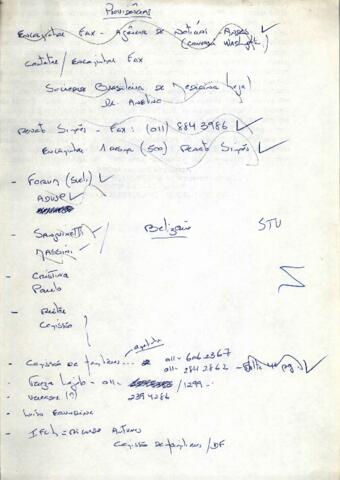 Providências
Encaminhar Fax - Agência de Notícias - Andes
(conversar Washgt.)
Contatar / Encaminhar Fax
Sociedade Brasileira de Medicina Legal
Dr
Renato Simões - Fax: (011) 884 3986
Encaminhar 1 resma (500) Renato Simões
- Forum (Sueli)
ADUNP
- Sanguinetti
Massini
Belizário
STU
- Cristina
Paulo
- Reitor
Comissão
- Comissão de familiares... 011- 606 2367
011- 284 2862
- 011- /1299
- Vereador (?) 239 4286
- Luiza Erundina
- IFCH = Ricardo Antunes
Comissão de familiares / DF